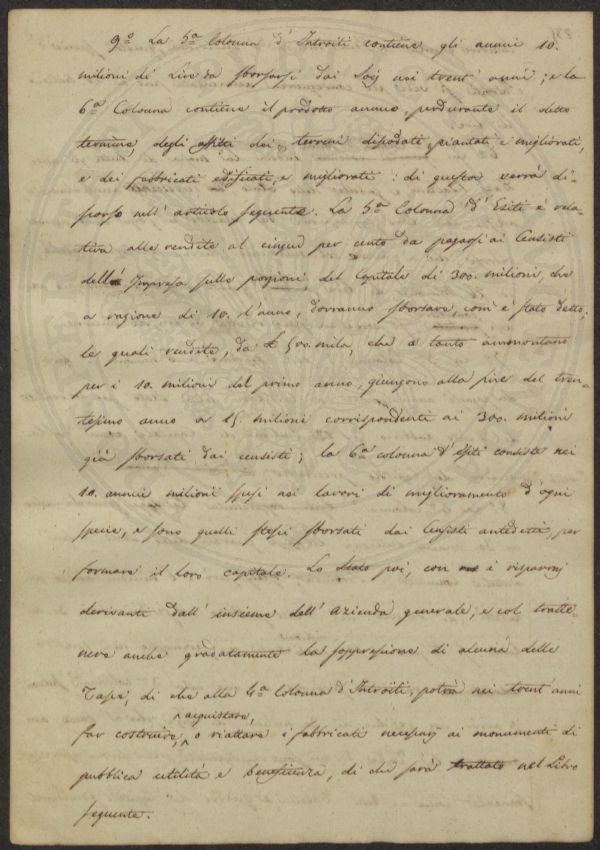 9.º La 5.ª Colonna d'Introiti contiene gli annui 10.
milioni di Lire da sborsarsi dai Socj nei trent'anni; e la
6.ª Colonna contiene il prodotto annuo, perdurante il detto
termine, degli affitti dei terreni dissodati, piantati e migliorati,
e dei fabbricati edificati, e migliorati: di questa verrà di-
scorso nell'articolo seguente. La 5.ª Colonna d'Esiti è rela-
tiva alle rendite al cinque per cento da pagarsi ai Censisti
dell' Impresa sulle porzioni del Capitale di 300. milioni, che
a ragione di 10. l'anno, dovranno sborsare, com'è stato detto;
le quali rendite, da £ 500. mila, che a tanto ammontano
per i 10. milioni del primo anno, giungono alla fine del tren-
tesimo anno a 15. milioni corrispondenti ai 300. milioni
già sborsati dai censisti; la 6.ª colonna d'Esiti consiste nei
10. annui milioni spesi nei lavori di miglioramento d'ogni
specie, e sono quelli stessi sborsati dai Censisti antedetti, per
formare il loro capitale. Lo Stato poi, con i risparmj
derivanti dall'insieme dell'azienda generale, e col tratte-
nere anche gradatamente la soppressione di alcuna delle
Tasse, di che alla 4.ª Colonna d'Introiti, potrà nei trent'anni
far costruire, acquistare, o riattare i fabbricati necessarj ai monumenti di
pubblica utilità e beneficenza, di che sarà trattato nel Libro
seguente.